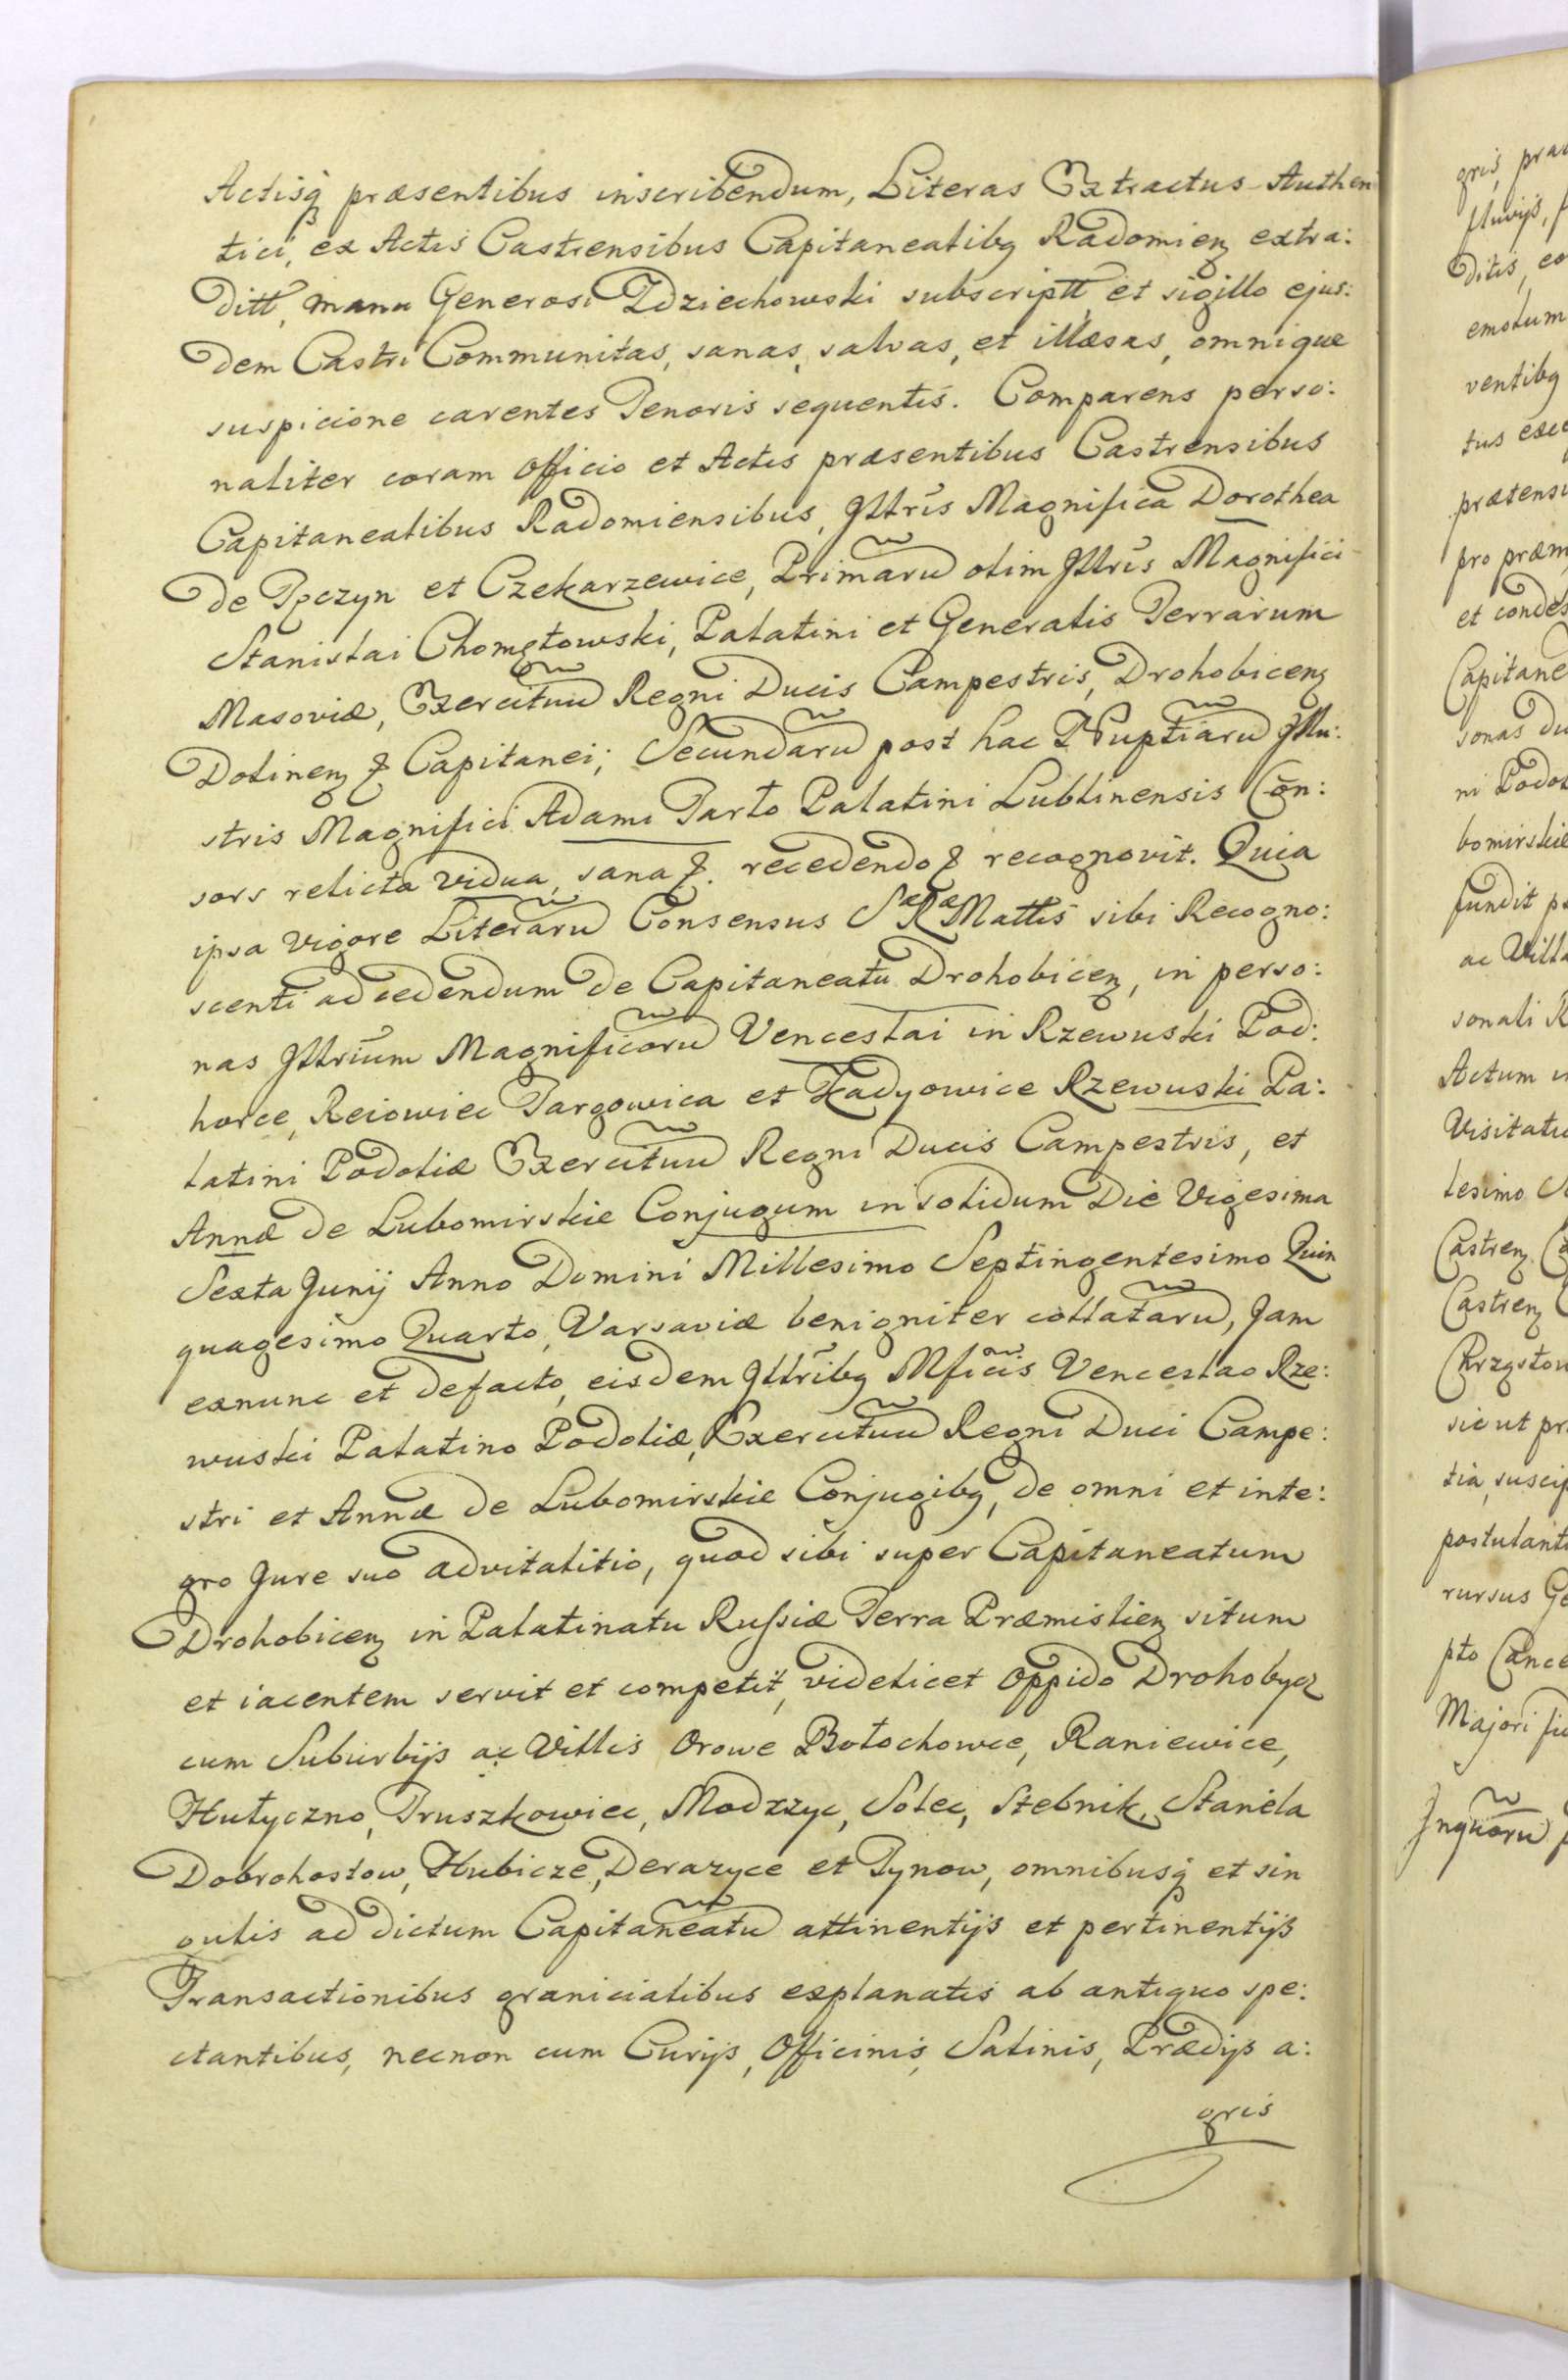 Actisq́ præsentibus inscribendum, Literas Extractus Authen
tici, ex Actis Castrensibus Capitanealibꝯ Radomienꝫ extra:
ditt, manu Generosi Zdziechowski subscriptt et sigillo ejus:
dem Castri Communitas, sanas, salvas, et illæsas, omniqúe
suspicione carentes Tenoris sequentis. Comparens perso:
naliter coram Officio et Actis præsentibus Castrensibus
Capitanealibus Radomiensibus, Jllrĩs Magnifica Dorothea
de Tęczyn et Czekarzewice, Primarũ olim Jllrĩs Magnifici
Stanislai Chomętowski, Palatini et Generalis Terrarum
Masoviæ, Exercitũũ Regni Ducis Campestris, Drohobicenꝫ
Dolinenꝫ & Capitanei; Secundarũ post hac Nuptiarũ Jllu:
stris Magnifici Adami Tarło Palatini Lublinensis Con:
sors relicta Vidua, sana &. recedendo & recognovit. Quia
ipsa vigore Literarũ Consensus Sæ Ræ Mattis sibi Recogno:
scenti ad cedendum de Capitaneatu Drohobicenꝫ, in perso:
nas Jllrĩum Magnificorũ Venceslai in Rzewuski Pod:
horce, Reiowiec Targowica et Kadyowice Rzewuski Pa:
latini Podoliæ Exercitũũ Regni Ducis Campestris, et
Annæ de Lubomirskie Conjugum in solidum Die Vigesima
Sexta Junij Anno Domini Millesimo Septingentesimo Quin
quagesimo Quarto, Varsaviæ benigniter collatarũ, Jam
exnunc et defacto, eisdem Jllrĩbꝯ Mficis Venceslao Rze:
wuski Palatino Podoliæ, Exercitũũ Regni Duci Campe:
stri et Annæ de Lubomirskie Conjugibꝯ, de omni et inte:
gro Jure suo advitalitio, quod sibi super Capitaneatum
Drohobicenꝫ in Palatinatu Russiæ Terra Præmislienꝫ situm
et iacentem servit et competit, videlicet Oppido Drohobycz
cum Suburbijs ac Villis Orowe Bołochowce, Raniewice,
Hutyczno, Truszkowiec, Modrzyc, Solec, Stebnik, Staneła
Dobrohostow, Hubicze, Derazyce et Tynow, omnibusq́ et sin
gulis ad dictum Capitaneatũ attinentijs et pertinentijs
Transactionibus granicialibus explanatis ab antiquo spe:
ctantibus, necnon cum Curijs, Officinis, Salinis, Prædijs a:
gris
gris, præ
fluvijs,
ditis, co
emolum
ventibꝯ
tus exce
prætens
pro præm
et condes
Capitane
sonas du
ni Podol
bomirskie
fundit
ac Villa
sonali
Actum
Visitatio
lesimo
Castrenꝫ
Castrenꝫ
sic ut pr
tia, suscip
postulant
rursus Ge
pto Cance
Majori
Jnquorũ